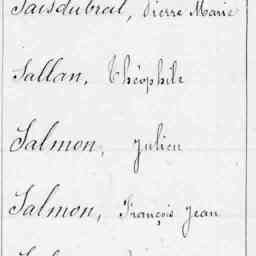 Saisdubrat, Pierre Marie
Sallan, Théophile
Salmon, Julien
Salmon, François Jean